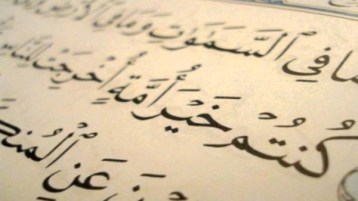 ما فِي ٱلسَّمَٰوَٰتِ وَمَا فِي ٱلْأَرْضِ
كُنتُمْ خَيْرَ أُمَّةٍ أُخْرِجَتْ لِلنَّاسِ
عَنِ ٱلْمُنكَرِ